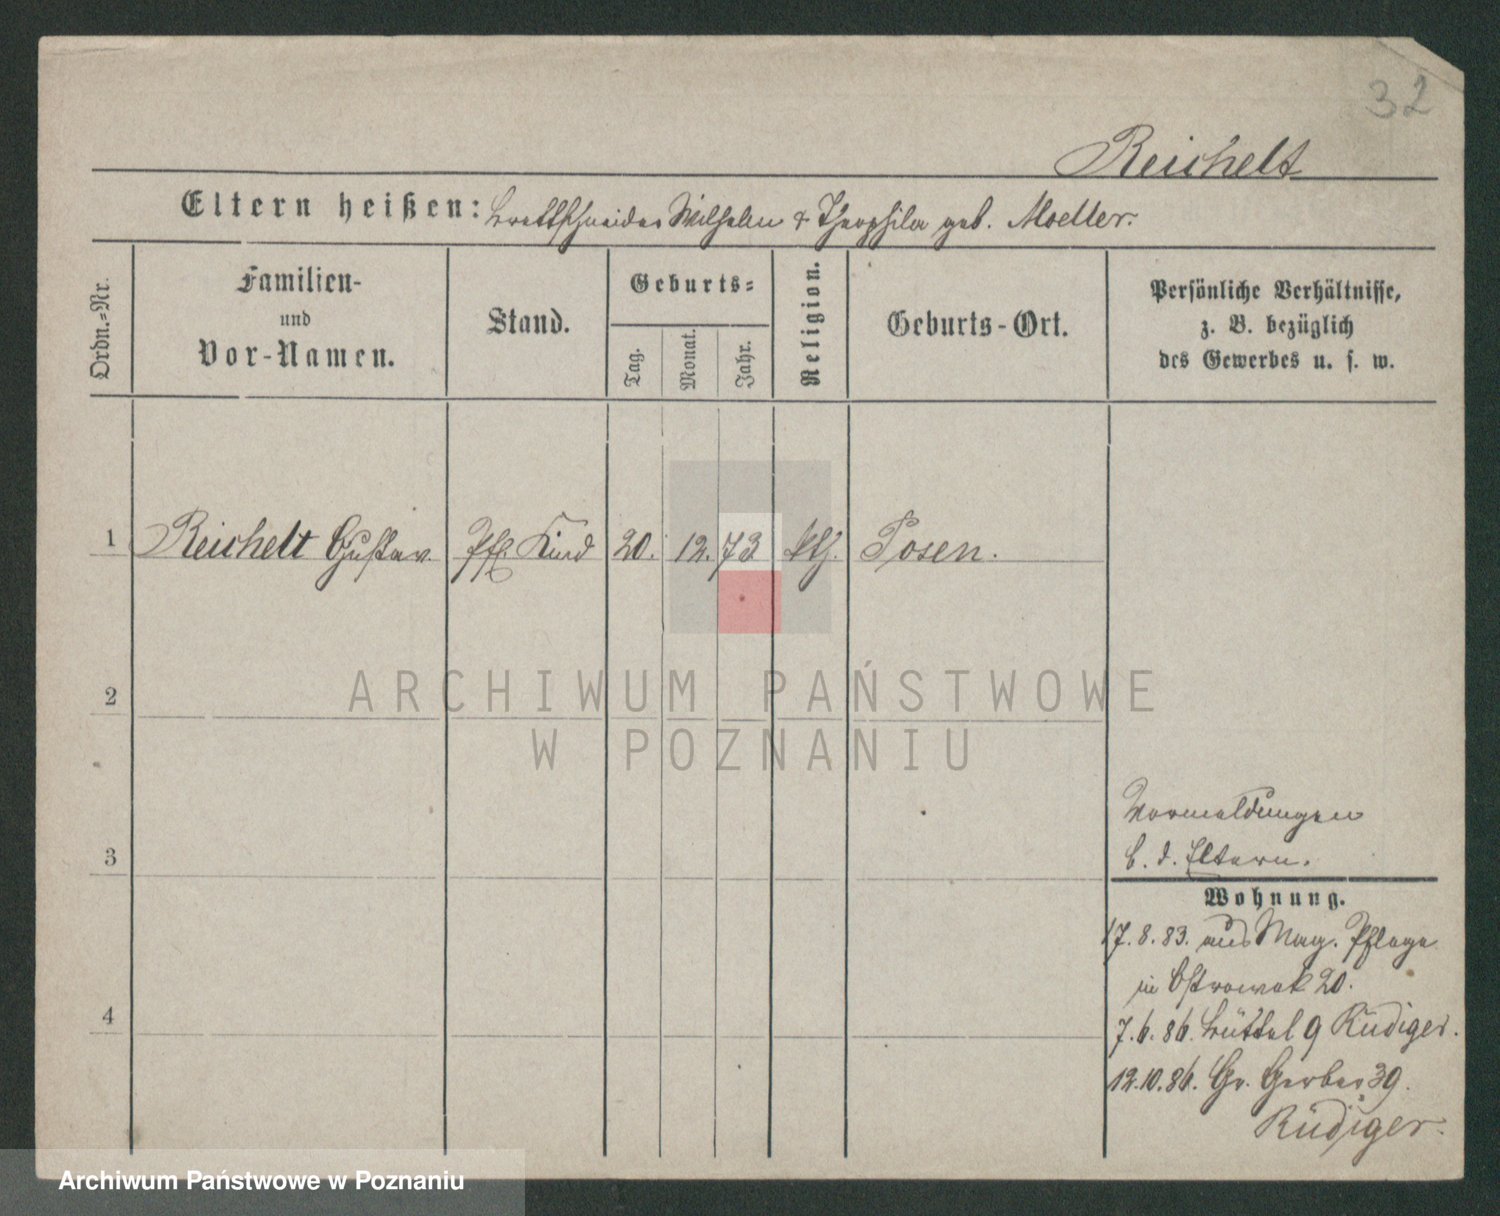 32
Reichelt
Eltern heißen: Brettschneider Wilhelm & Theophila geb. Moeller.
Ordn.-Nr.
Familien-
und
Vor-Namen.
Stand.
Geburts-
Tag.
Monat.
Jahr.
Religion.
Geburts-Ort.
Persönliche Verhältnisse,
z. B. bezüglich
des Gewerbes u. s. w.
1 Reichelt Gustav Pfl. Kind 20. 12. 73 kth. Posen.
2
3
4
Vormeldungen
b. d. Eltern.
Wohnung.
17. 8. 83. aus Mag. Pflege
in Ostrowek 20.
7. 6. 86. Büttel 9 Rüdiger.
12. 10. 86. Gr. Gerber 39.
Rüdiger.
ARCHIWUM PAŃSTWOWE
W POZNANIU
Archiwum Państwowe w Poznaniu